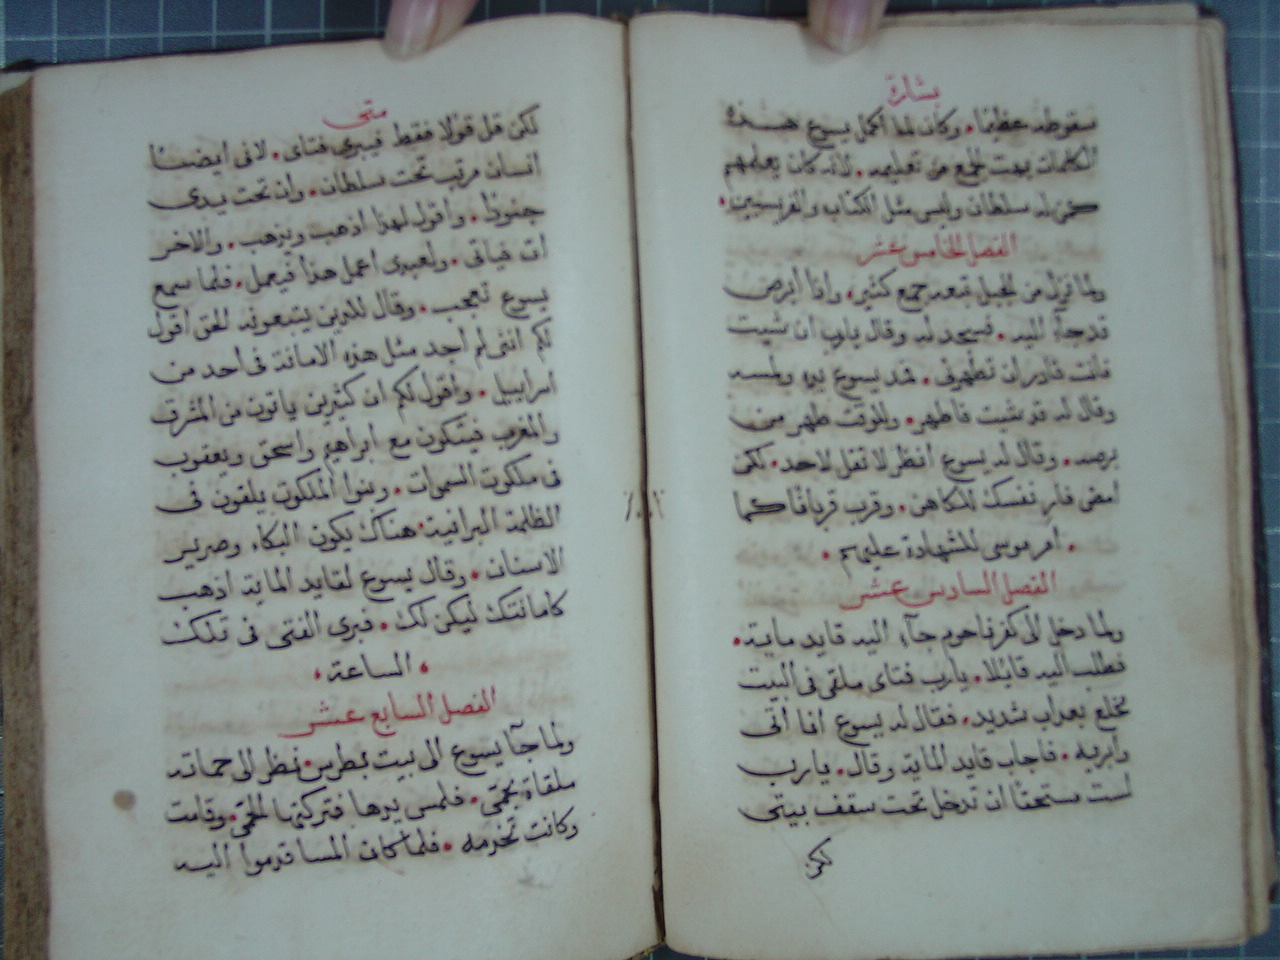 بشارة
سقوطه عظيمًا. وكان لما اكمل يسوع هذه
الكلمات بهت الجمع من تعليمه. لانه كان يعلمهم
كمن له سلطان وليس مثل الكتاب والفريسيين.
الفصل الخامس عشر
ولما نزل من الجبل تبعه جمع كثير. واذا ابرص
قد جآء اليه. فسجد له وقال يارب ان شيت
فانت قادر ان تطهرني. فمد يسوع يده ولمسه
وقال له قد شيت فاطهر. وللوقت طهر من
برصه. وقال له يسوع انظر لا تقل لاحد. لكن
امض فار نفسك للكاهن. وقرب قربانًا كما
. امر موسى للشهادة عليهم .
الفصل السادس عشر
ولما دخل الى كفرناحوم جآء اليه قايد ماية.
فطلب اليه قايلا. يارب فتاى ملقى فى البيت
مخلع بعذاب شديد. فقال له يسوع انا اتى
وابريه. فاجاب قايد الماية وقال. يارب
لست مستحقًا ان تدخل تحت سقف بيتى
لكن
متى
لكن قل قولا فقط فيبرى فتاى. لانى ايضًا
انسان مرتب تحت سلطان. وان تحت يدى
جنودًا. واقول لهذا اذهب ويذهب. والاخر
ات فياتى. ولعبدى اعمل هذا فيعمل. فلما سمع
يسوع تعجب. وقال للذين يتبعونه الحق اقول
لكم اننى لم اجد مثل هذه الامانة فى احد من
اسراييل. واقول لكم ان كثيرين ياتون من المشرق
والمغرب فيتكون مع ابراهيم واسحق ويعقوب
فى ملكوت السموات. وبنوا الملكوت يلقون فى
الظلمة البرانية. هناك يكون البكاء وصرير
الاسنان. وقال يسوع لقايد الماية اذهب
كامانتك ليكن لك. فبرى الفتى فى تلك
. الساعة .
الفصل السابع عشر
ولما جآ يسوع الى بيت بطرس. نظر الى حماته
ملقاة بحمى. فلمس يدها فتركتها الحمى. وقامت
وكانت تخدمه. فلما كان المسا قدموا اليه